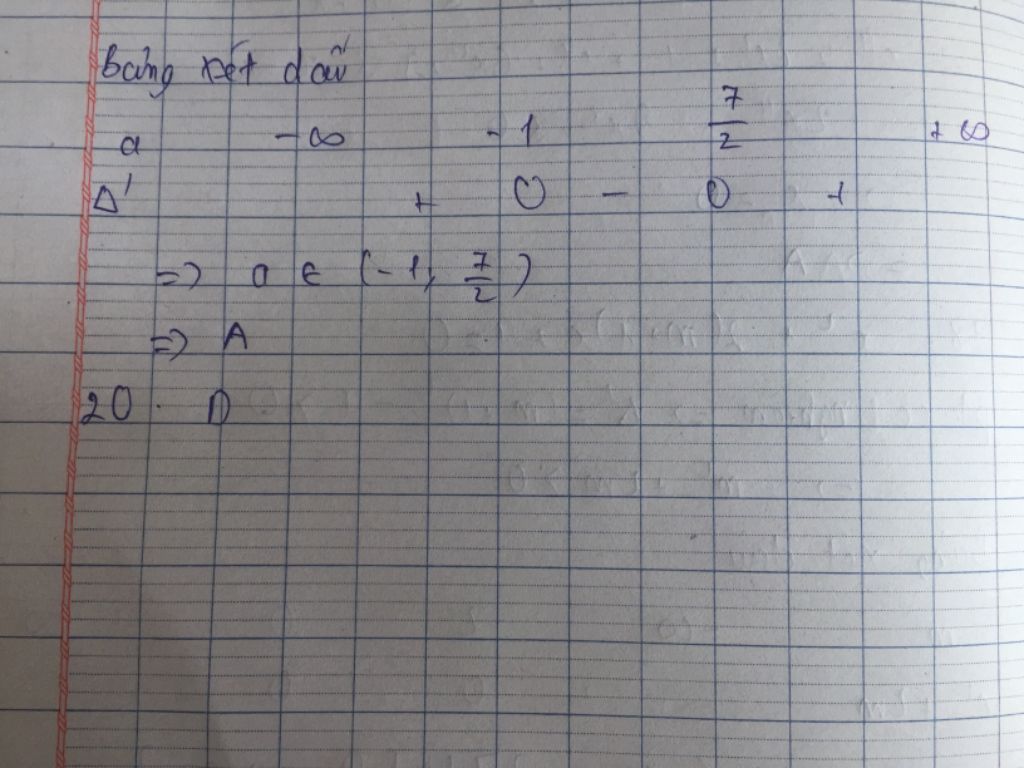 Bảng xét dấu
a -∞ -1 7/2 +∞
Δ' + 0 - 0 +
=> a ∈ (-1, 7/2)
=> A
20. D